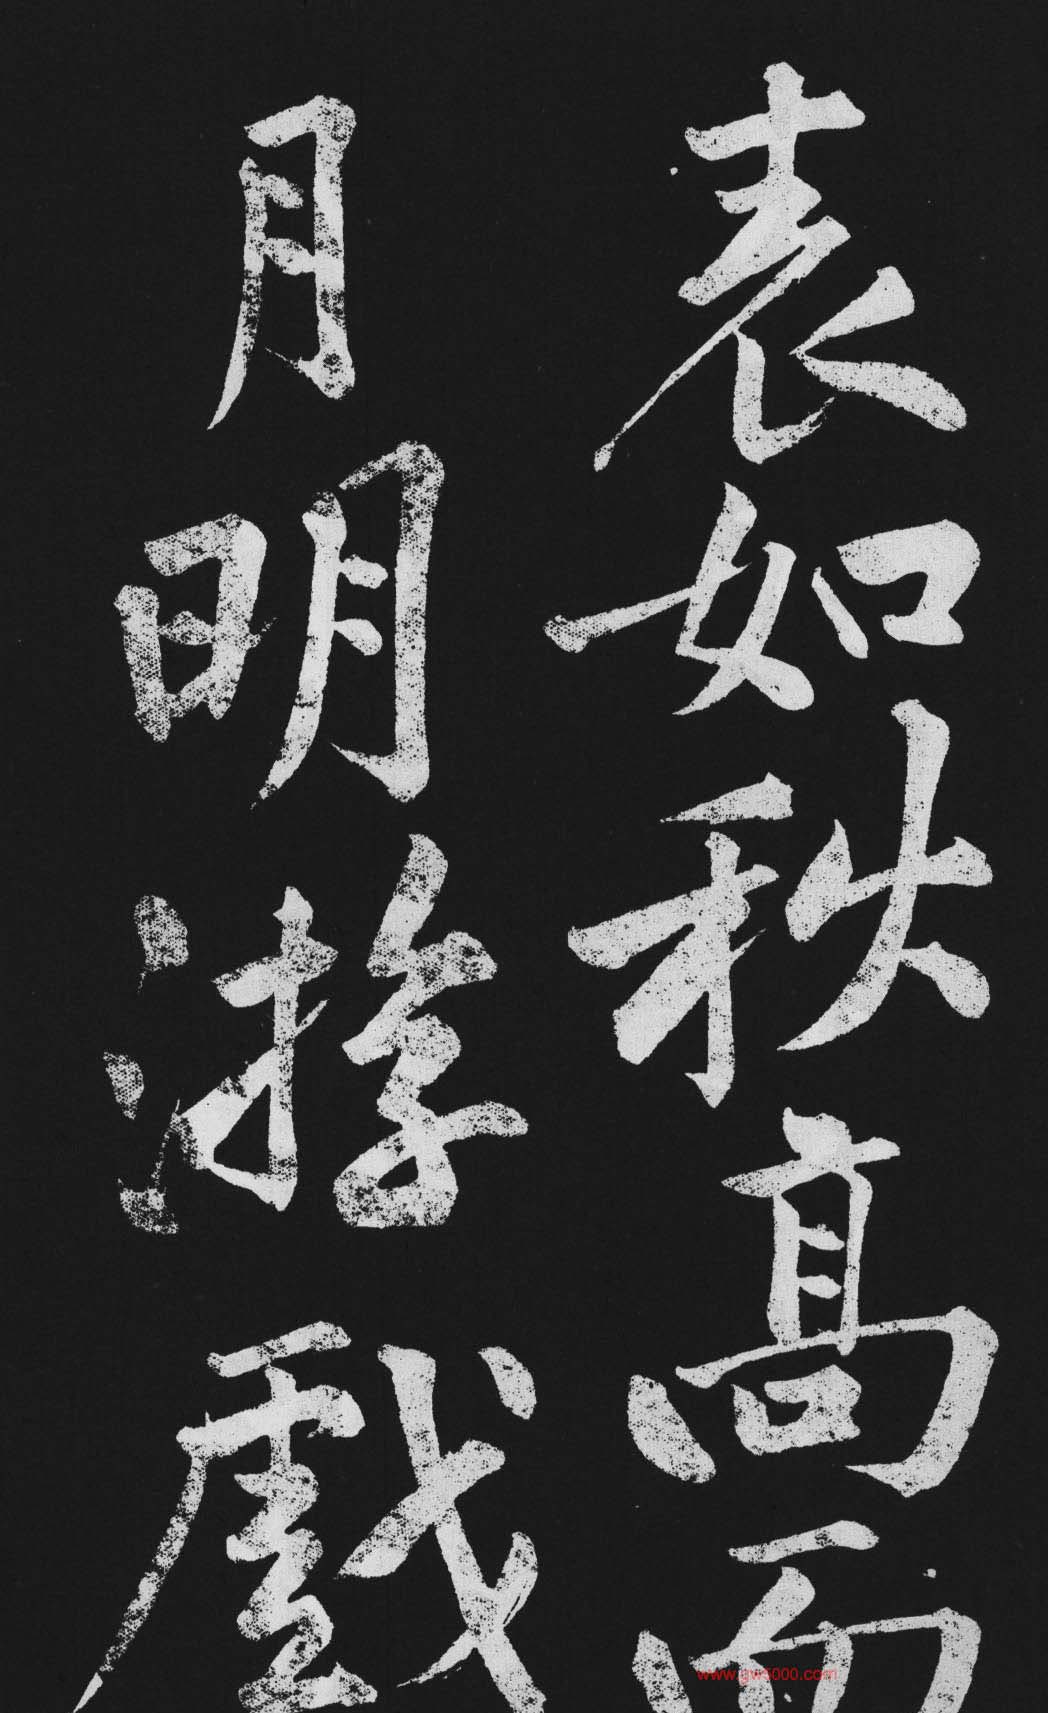 表如秋高而
月明游戲
www.gw5000.com